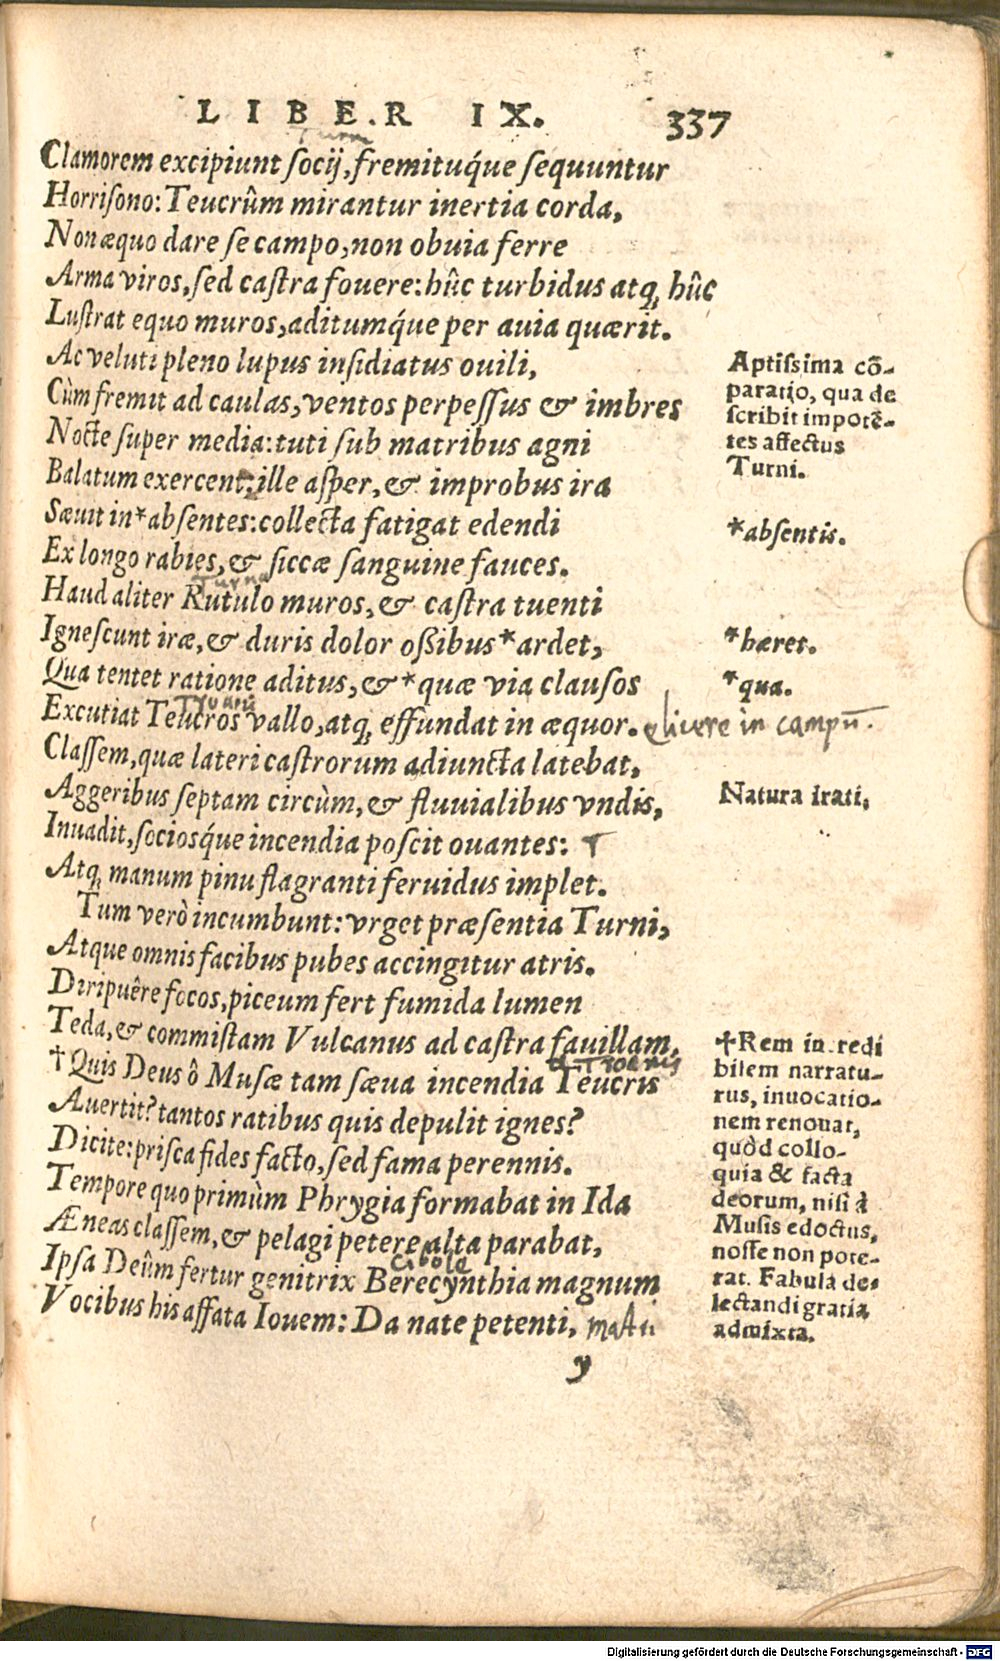 LIBER IX. 337
Clamorem excipiunt socij, fremituq́ue sequuntur
Horrisono: Teucrûm mirantur inertia corda,
Non æquo dare se campo, non obuia ferre
Arma viros, sed castra fouere: hûc turbidus atq, hûc
Lustrat equo muros, aditumq́ue per auia quærit.
Ac veluti pleno lupus insidiatus ouili,
Cùm fremit ad caulas, ventos perpessus & imbres
Nocte super media: tuti sub matribus agni
Balatum exercent: ille asper, & improbus ira
Sæuit in *absentes: collecta fatigat edendi
Ex longo rabies, & siccæ sanguine fauces.
Turno
Haud aliter Rutulo muros, & castra tuenti
Ignescunt iræ, & duris dolor oßibus *ardet,
Qua tentet ratione aditus, & *quæ via clausos
Excutiat Teucros vallo, atq, effundat in æquor. elicere in campū.
Classem, quæ lateri castrorum adiuncta latebat,
Aggeribus septam circùm, & fluuialibus vndis,
Inuadit, sociosq́ue incendia poscit ouantes:
Atq, manum pinu flagranti feruidus implet.
Tum verò incumbunt: vrget præsentia Turni,
Atque omnis facibus pubes accingitur atris.
Diripuêre focos, piceum fert fumida lumen
Teda, & commistam Vulcanus ad castra fauillam.
à Troanis
†Quis Deus ô Musæ tam sæua incendia Teucris
Auertit? tantos ratibus quis depulit ignes?
Dicite: prisca fides facto, sed fama perennis.
Tempore quo primùm Phrygia formabat in Ida
Æneas classem, & pelagi petere alta parabat,
Cibole
Ipsa Deûm fertur genitrix Berecynthia magnum
Vocibus his affata Iouem: Da nate petenti, matri
y
Aptissima cō-
paratio, qua de
scribit impotē-
tes affectus
Turni.
*absentis.
*hæret.
*qua.
Natura irati,
†Rem in redi
bilem narratu-
rus, inuocatio-
nem renouat,
quòd collo-
quia & facta
deorum, nisi à
Musis edoctus,
nosse non pote-
rat. Fabula de-
lectandi gratia
admixta.
Digitalisierung gefördert durch die Deutsche Forschungsgemeinschaft - DFG